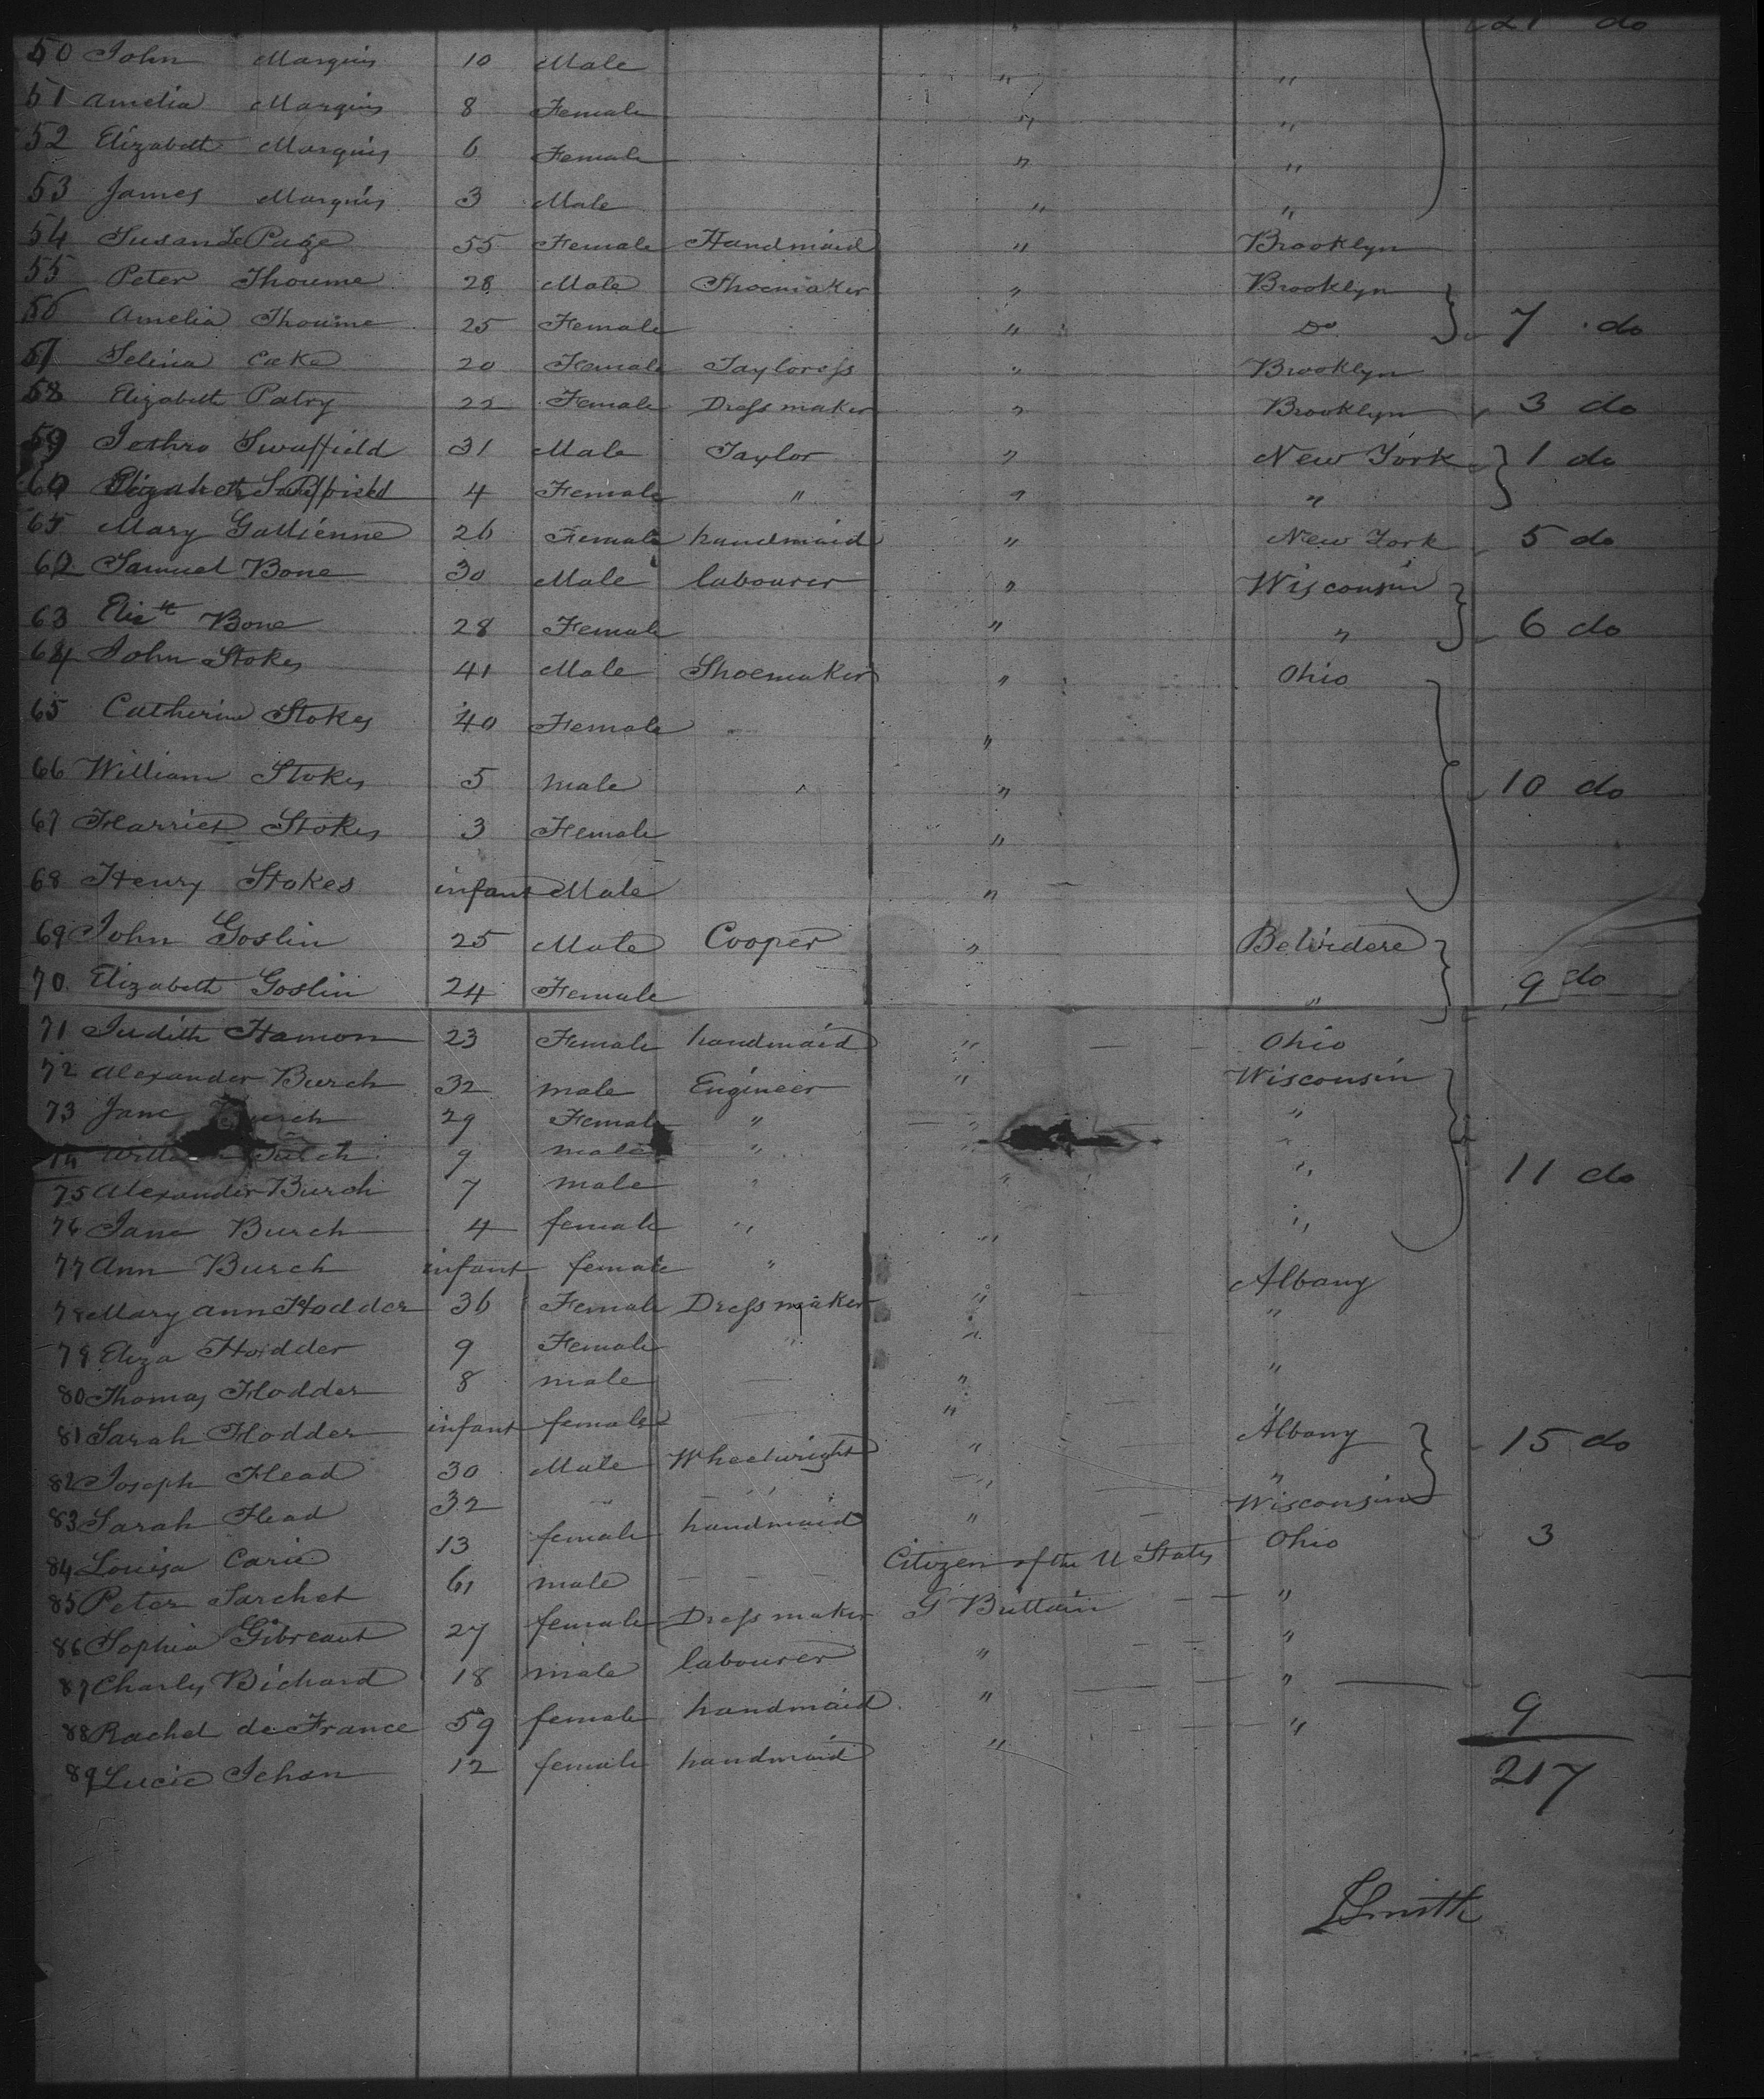 21 do
50 John Marquis 10 Male " "
51 Amelia Marquis 8 Female " "
52 Elizabeth Marquis 6 Female " "
53 James Marquis 3 Male " "
54 Susan Le Page 55 Female Handmaid " Brooklyn
55 Peter Thoume 28 Male Shoemaker " Brooklyn
56 Amelia Thoume 25 Female " Do 7 do
57 Selina Cake 20 Female Tayloress " Brooklyn
58 Elizabeth Patry 22 Female Dress maker " Brooklyn 3 do
59 Jethro Swaffield 31 Male Taylor " New York 1 do
60 Elizabeth 4 Female " " "
65 Mary Gallienne 26 Female handmaid " New York 5 do
62 Samuel Bone 30 Male labourer " Wisconsin
63 Elizth Bone 28 Female " " 6 do
64 John Stokes 41 Male Shoemaker " Ohio
65 Catherine Stokes 40 Female "
66 William Stokes 5 male " 10 do
67 Harriet Stokes 3 Female "
68 Henry Stokes infant Male "
69 John Goslin 25 Male Cooper " Belvidere
70 Elizabeth Goslin 24 Female " 9 do
71 Judith Hamon 23 Female handmaid " Ohio
72 Alexander Burch 32 male Engineer " Wisconsin
73 Jane Burch 29 Female " " "
74 9 male " " "
75 Alexander Burch 7 male " " " 11 do
76 Jane Burch 4 female " " "
77 Ann Burch infant female " Albany
78 Mary Ann Hodder 36 Female Dress maker " "
79 Eliza Hodder 9 Female " "
80 Thomas Hodder 8 male " "
81 Sarah Hodder infant female " Albany 15 do
82 Joseph Head 30 Male Wheelwright " "
83 Sarah Head 32 " " Wisconsin
84 Louisa Carie 13 female handmaid " Ohio 3
85 Peter Sarchet 61 male Citizen of the U States "
86 Sophia Gibreaut 27 female Dress maker G Brittain "
87 Charles Bichard 18 male labourer " "
88 Rachel de France 59 female handmaid " " 9
89 Lucie Jehan 12 female handmaid " 217
Smith